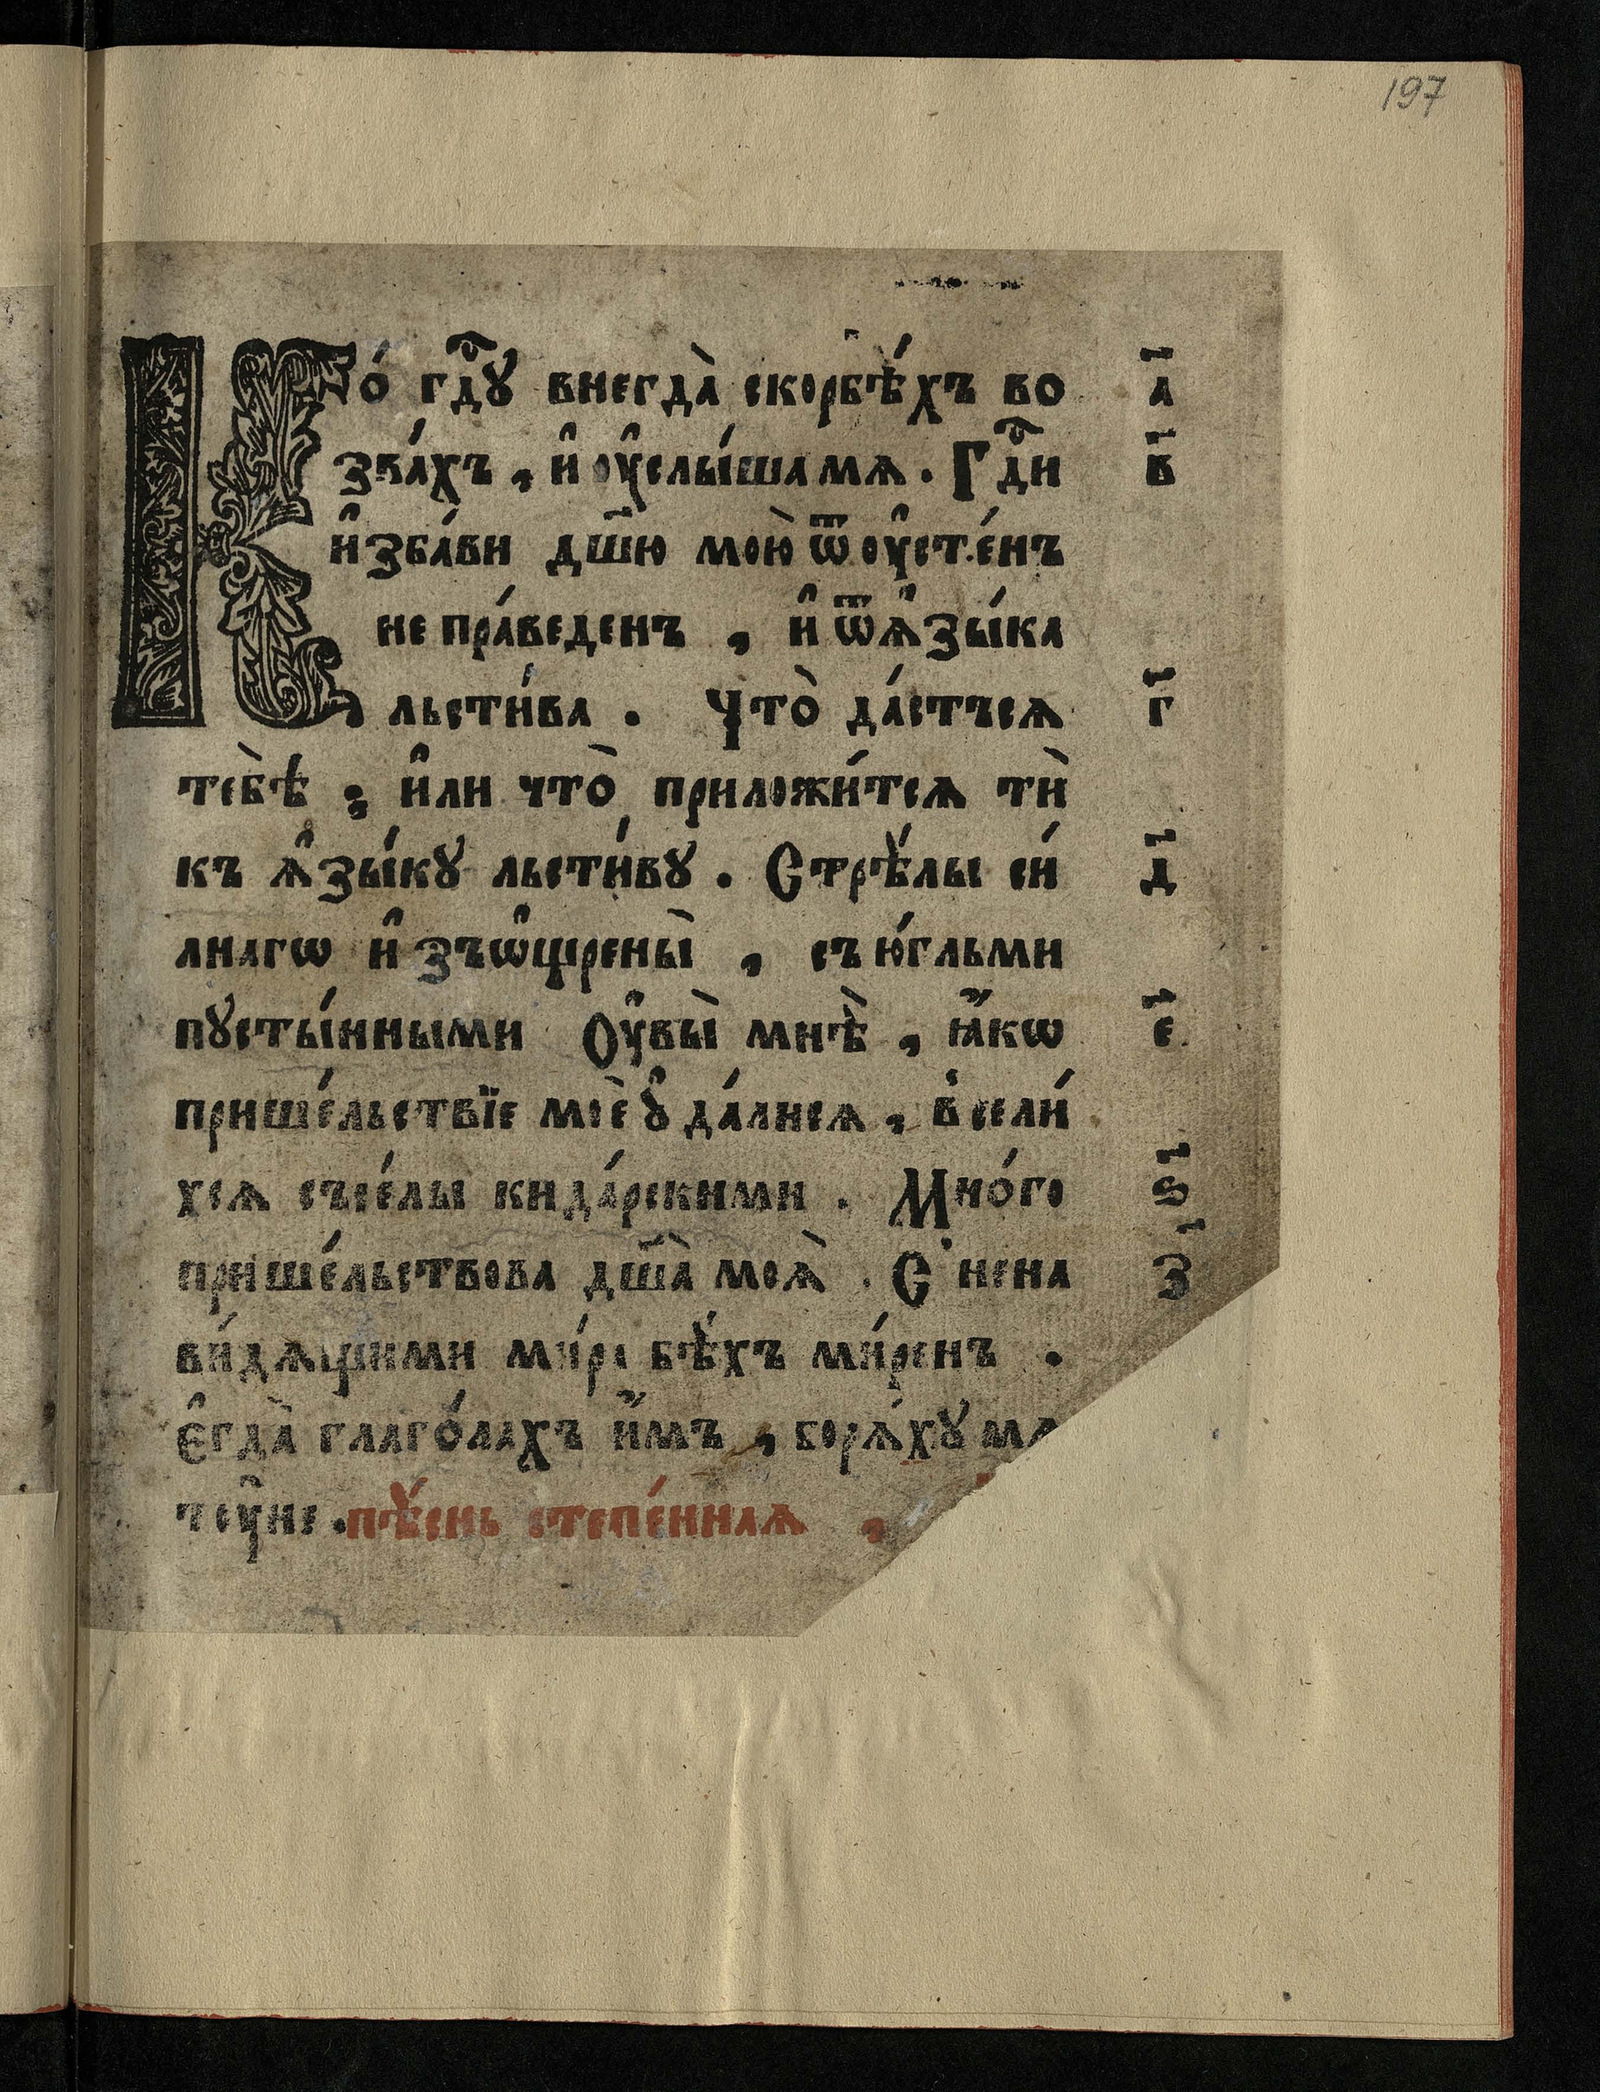 197
Ко́ гдⷭ҇ꙋ внегда̀ скорбѣ́хъ во а҃
зва́хъ , и҆ ᲂу҆слы́ша мѧ . Гдⷭ҇и в҃
и҆збави дш҃ю мою̀ ѿ ᲂу҆сте́нъ
не пра́веденъ , и҆ ѿ ѧ҆зы́ка
льсти́ва . Что̀ да́стъсѧ г҃
тебѣ̀ ; и҆ли что̀ приложи́тсѧ ти̏
къ ѧ҆зы́кꙋ льсти́вꙋ . Стрѣ́лы си́ д҃
лнагѡ и҆зъѡ҆щрены̀ , съ ю́гльми
пꙋсты́нными Оу҆вы̀ мнѣ̀ , ꙗ҆́кѡ є҃
прише́льствїе моѐ ꙋ҆да́лисѧ , в҆сели́
хсѧ съсе́лы кида́рскими . Мно́го ѕ҃
прише́льствова дш҃а̀ моѧ̀ . С нена з҃
ви́дѧщими ми́ра бѣ́хъ ми́ренъ .
є҆гда̀ глаго́лахъ и҆́мъ , борѧ́хꙋ мѧ
тᲂу҆не . пѣ́снь степе́ннаѧ ,